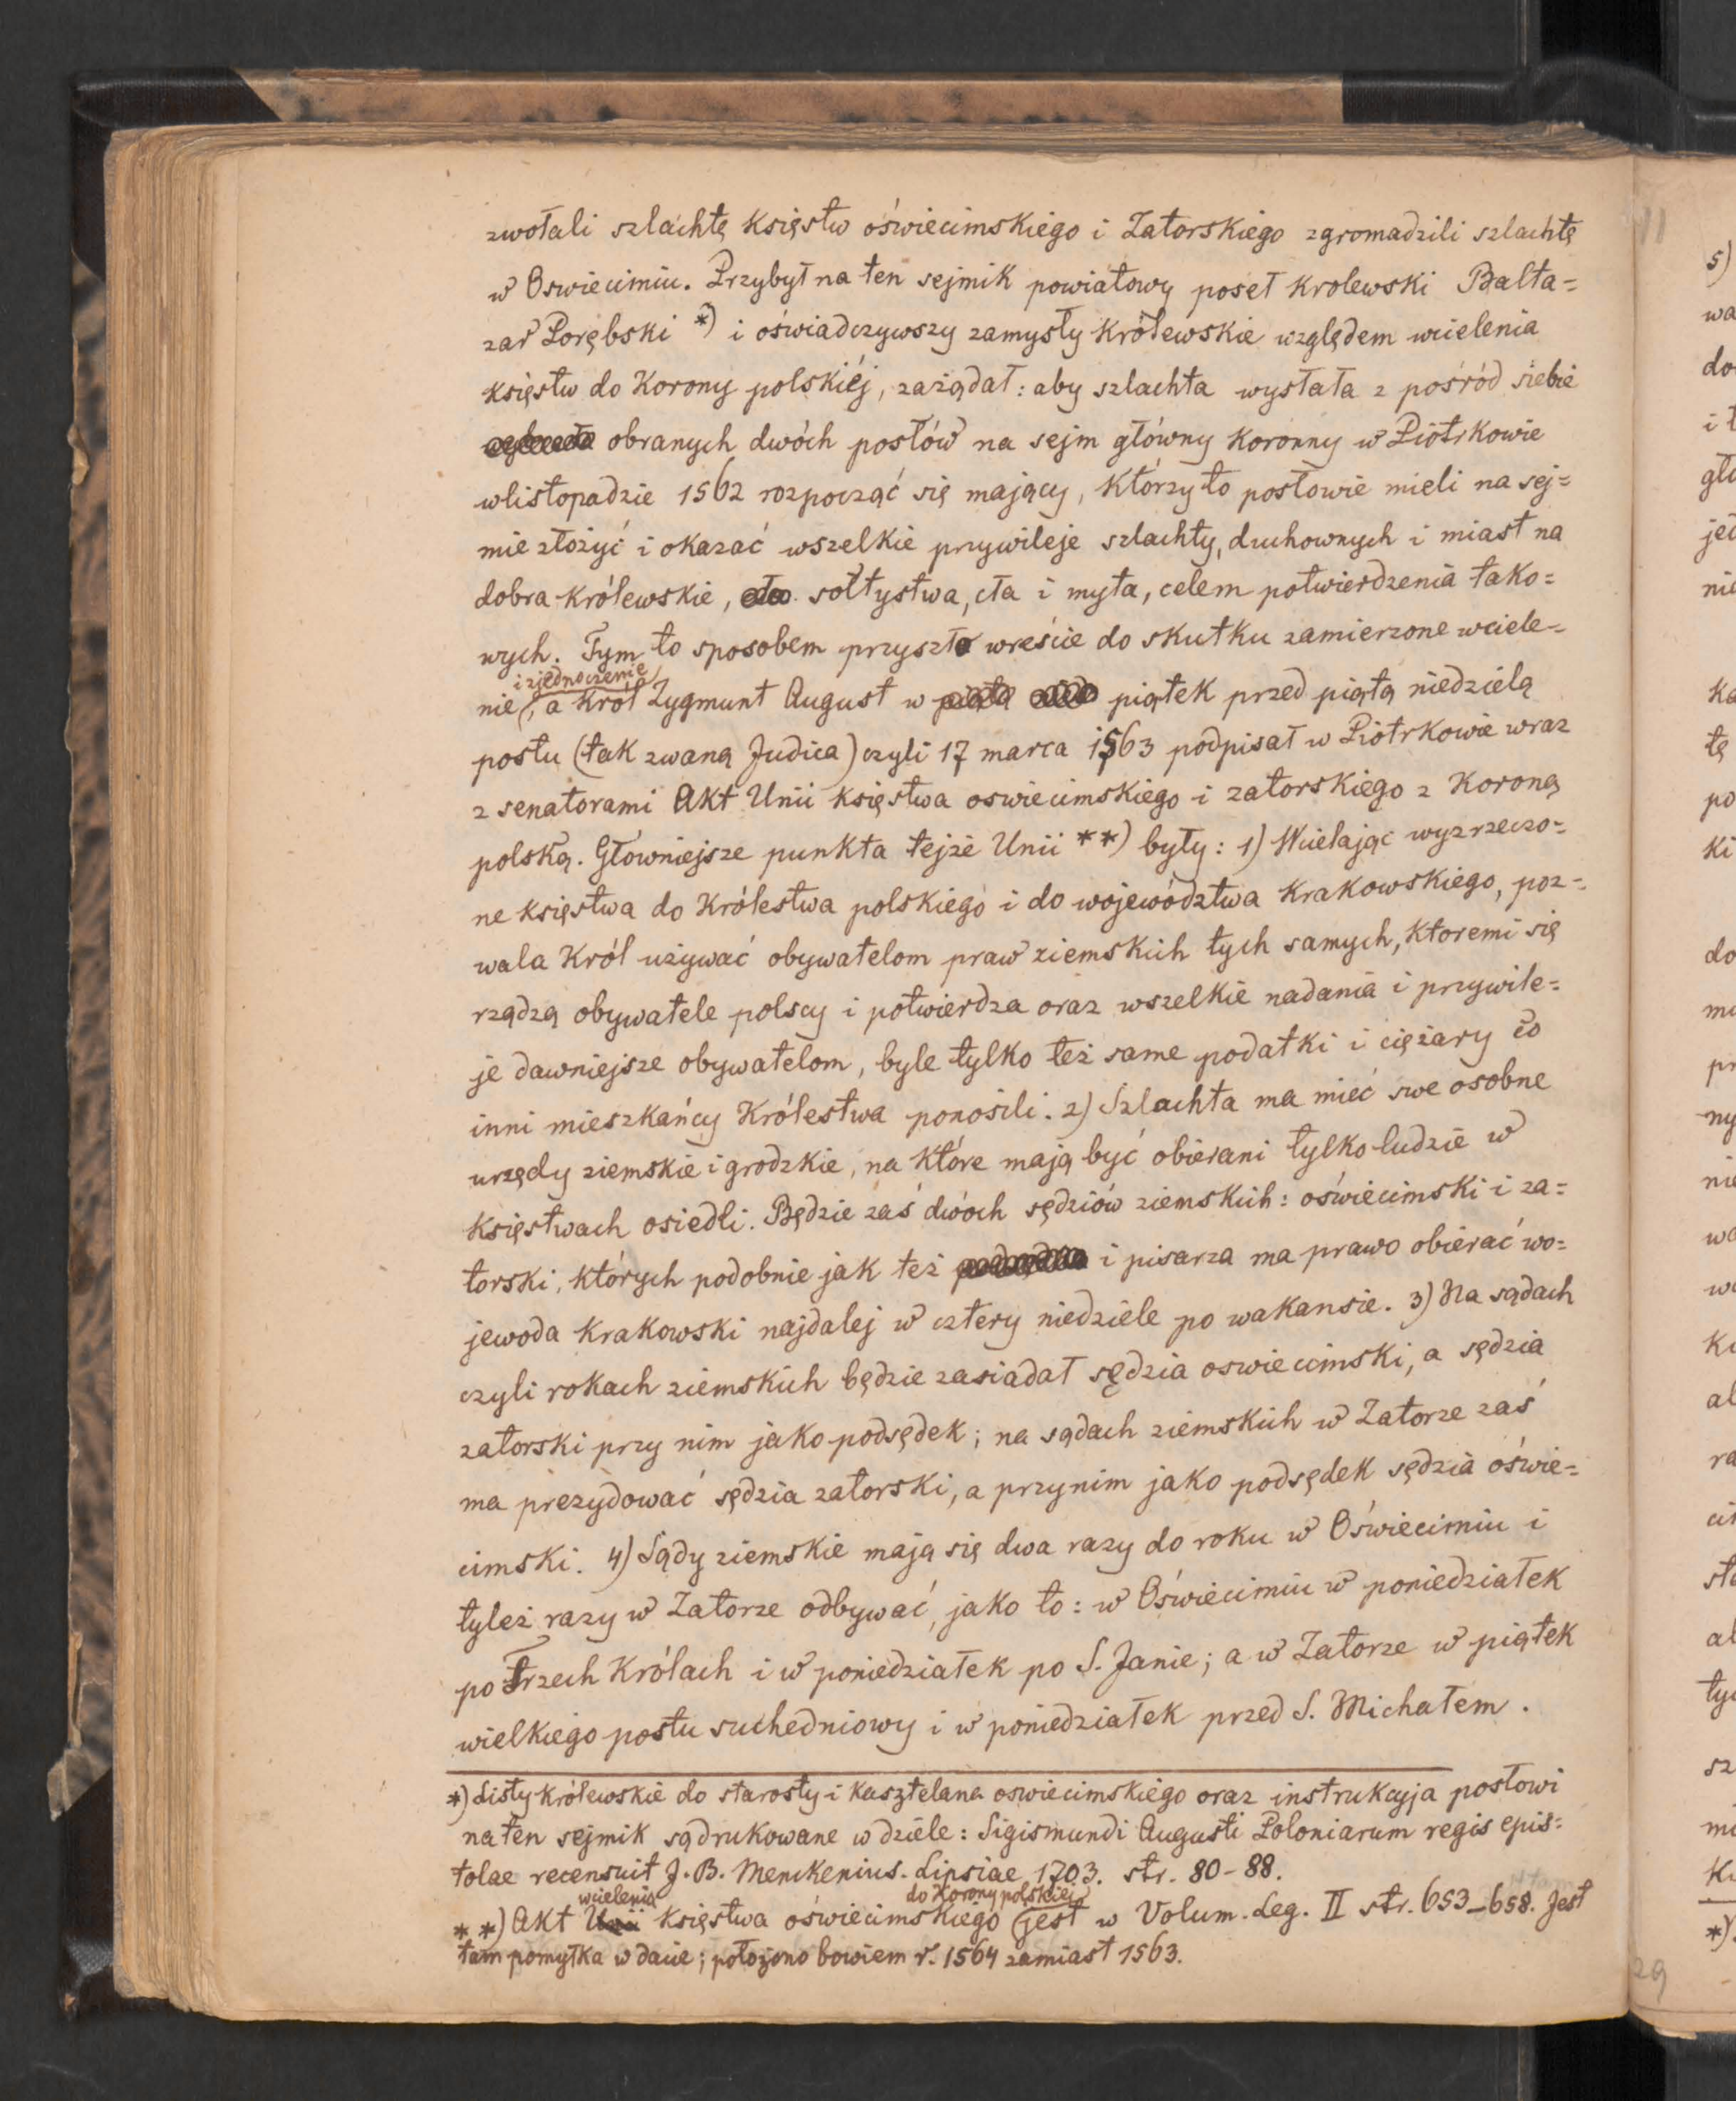 zwołali szlachtę księstw oświecimskiego i Zatorskiego zgromadzili szlachtę
w Oswiecimiu. Przybył na ten sejmik powiatowy poseł krolewski Balta=
zar Porębski *) i oświadczywszy zamysły królewskie względem wcielenia
księstw do Korony polskiéj, zażądał: aby szlachta wysłała z pośród siebie
obranych dwóch posłów na sejm główny koronny w Piotrkowie
w listopadzie 1562 rozpocząć się mający, którzy to posłowie mieli na sej=
mie złożyć i okazać wszelkie przywileje szlachty, duchownych i miast na
dobra królewskie, sołtystwa, cła i myta, celem potwierdzenia tako=
wych. Tym to sposobem przyszło wreście do skutku zamierzone wciele=
i zjednoczenie
nie, a król Zygmunt August w piątek przed piątą niedzielą
postu (tak zwaną Judica) czyli 17 marca 1563 podpisał w Piotrkowie wraz
z senatorami Akt Unii księstwa oswiecimskiego i zatorskiego z Koroną
polską. Głowniejsze punkta tejże Unii **) były: 1) Wcielając wyzrzeczo=
ne księstwa do Królestwa polskiego i do województwa Krakowskiego, poz=
wala Król używać obywatelom praw ziemskich tych samych, ktoremi się
rządzą obywatele polscy i potwierdza oraz wszelkie nadania i przywile=
je dawniejsze obywatelom, byle tylko też same podatki i ciężary co
inni mieszkańcy Królestwa ponosili. 2) Szlachta ma mieć swe osobne
urzędy ziemskie i grodzkie, na które mają być obierani tylko ludzie w
księstwach osiedli. Będzie zaś dwóch sędziów ziemskich: oświecimski i za=
torski, których podobnie jak też i pisarza ma prawo obierać wo=
jewoda krakowski najdalej w cztery niedziele po wakansie. 3) Na sądach
czyli rokach ziemskich będzie zasiadał sędzia oswiecimski, a sędzia
zatorski przy nim jako podsędek; na sądach ziemskich w Zatorze zaś
ma prezydować sędzia zatorski, a przy nim jako podsędek sędzia oświe=
cimski. 4) Sądy ziemskie mają się dwa razy do roku w Oświecimiu i
tyleż razy w Zatorze odbywać, jako to: w Oświecimiu w poniedziałek
po Trzech Królach i w poniedziałek po S. Janie; a w Zatorze w piątek
wielkiego postu suchedniowy i w poniedziałek przed S. Michałem.
*) Listy królewskie do starosty i kasztelana oswiecimskiego oraz instrukcyja posłowi
na ten sejmik są drukowane w dziele: Sigismundi Augusti Poloniarum regis epis=
tolae recensuit J. B. Menckenius. Lipsiae 1703. str. 80-88.
wcielenia do Korony polskiej
**) Akt Unii księstwa oświecimskiego jest w Volum. Leg. II str. 653-658. Jest
tam pomyłka w dacie; położono bowiem r. 1564 zamiast 1563.